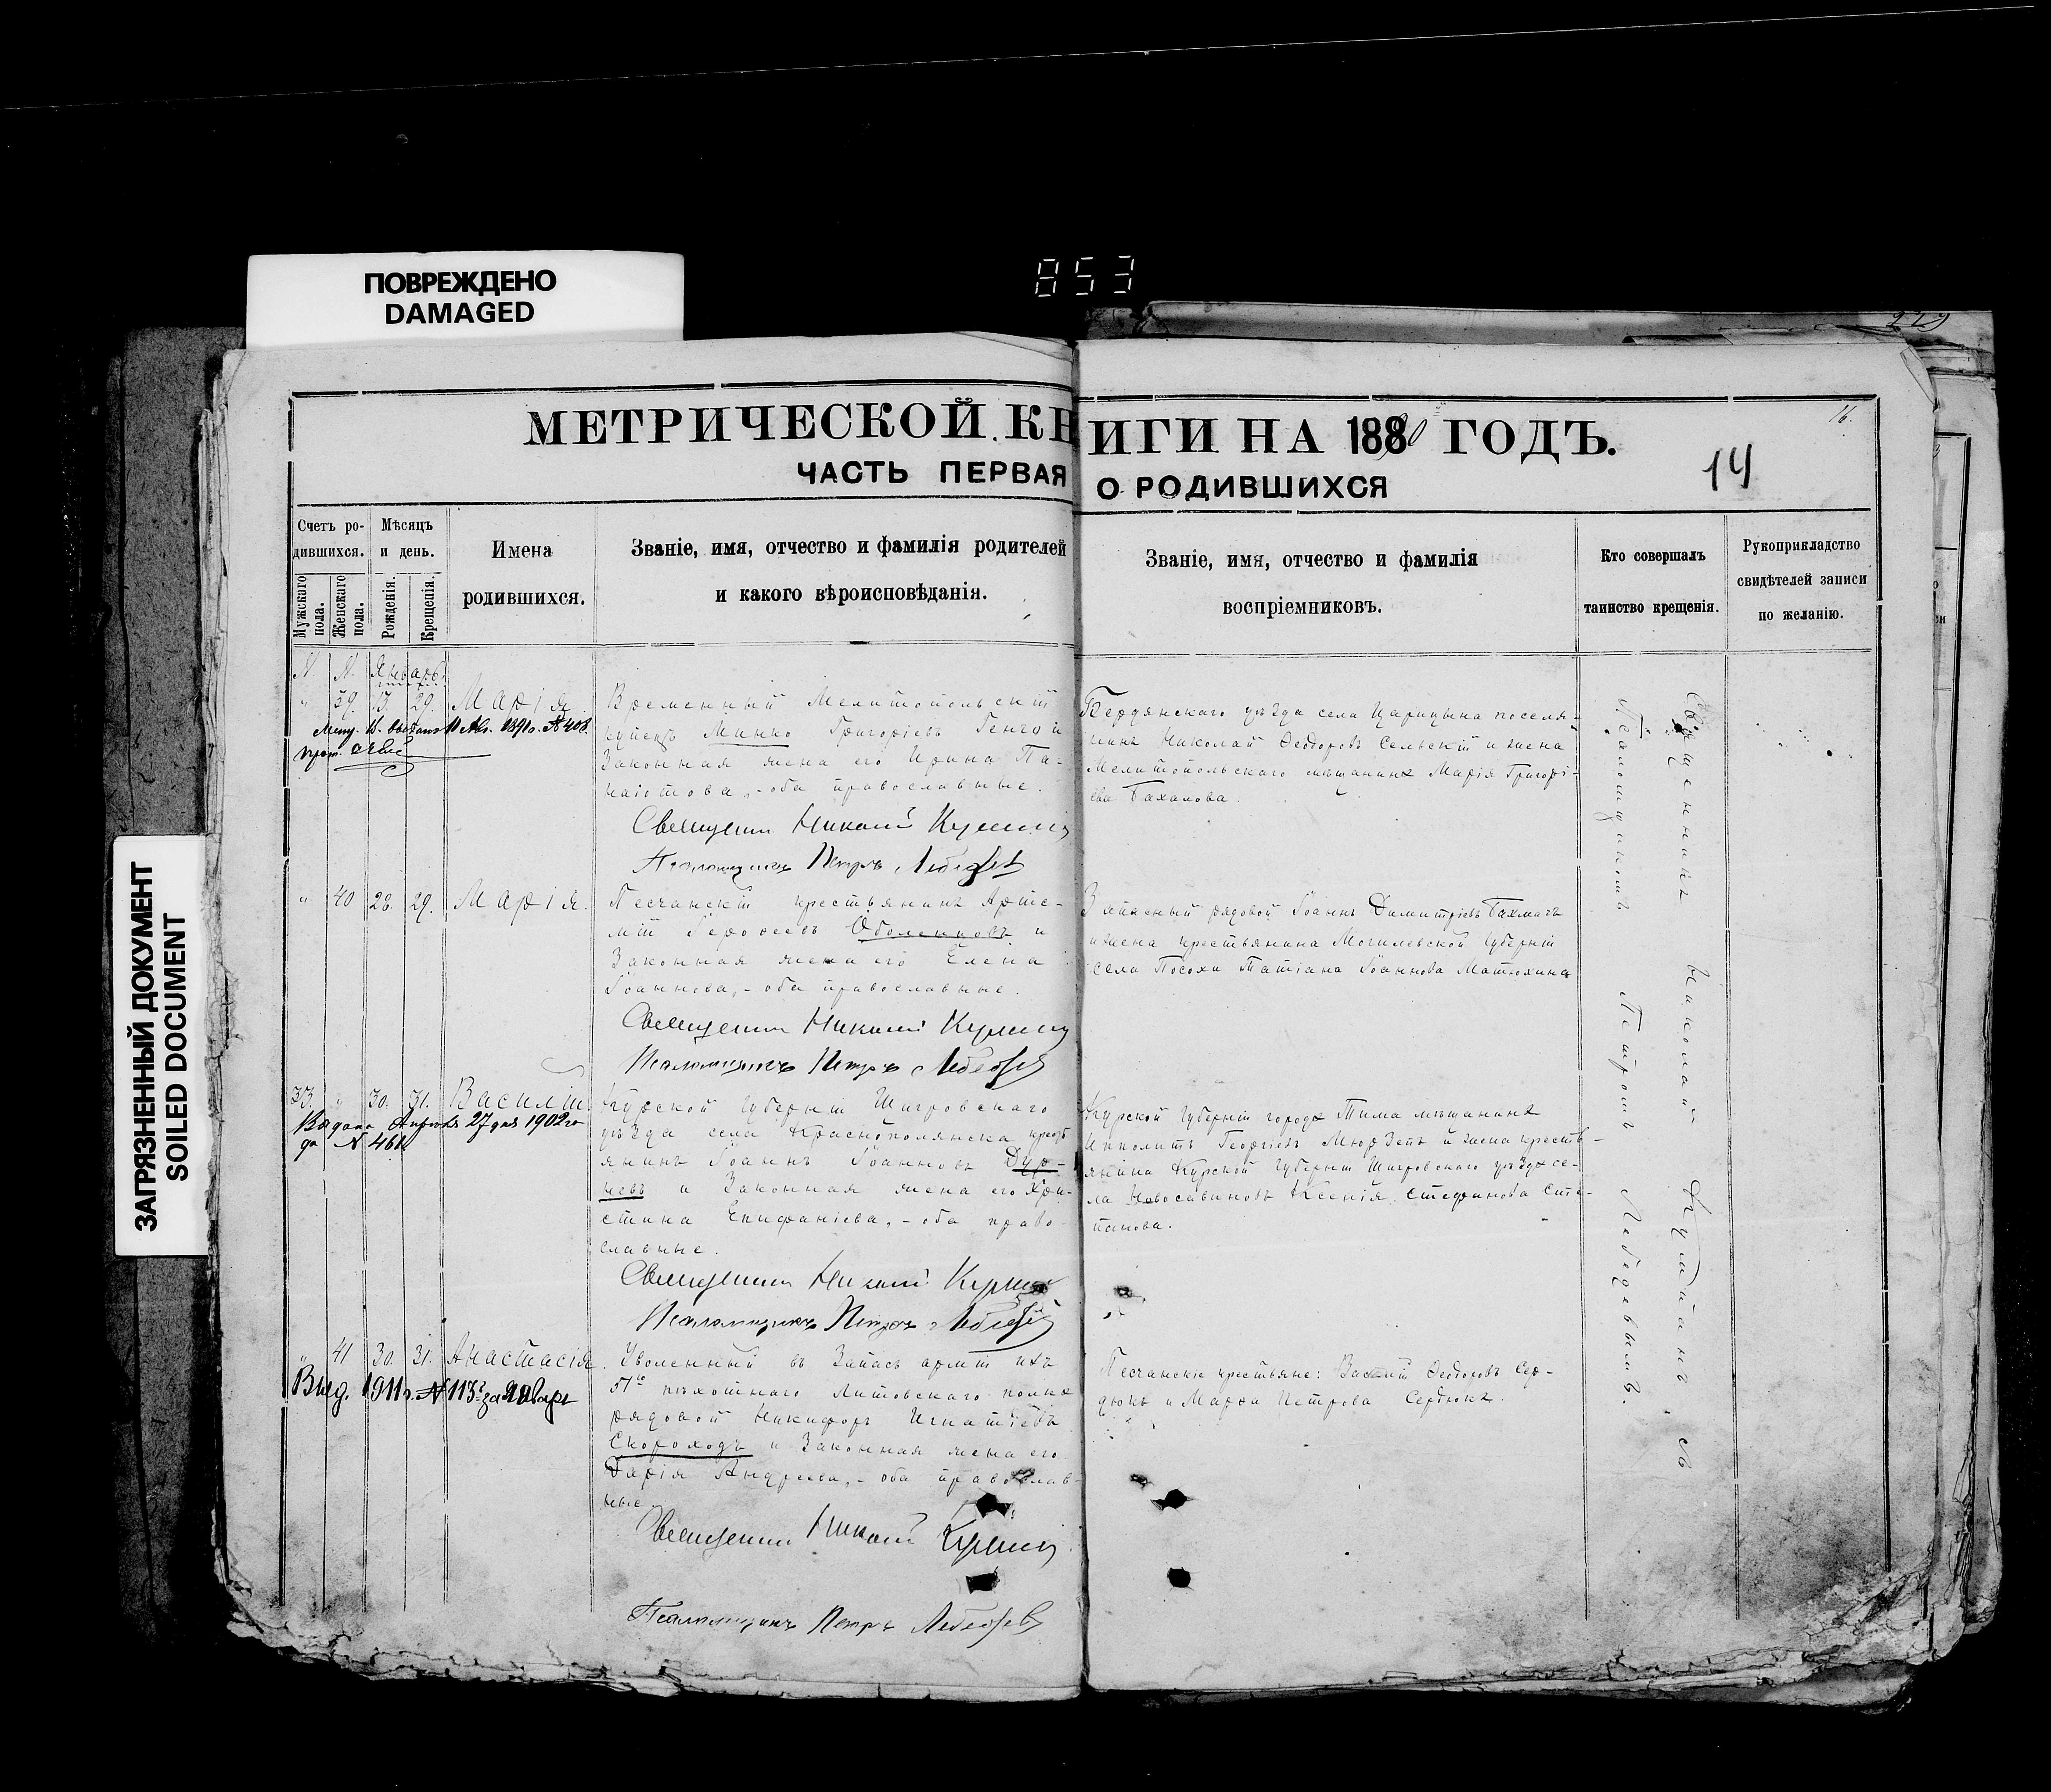 853
ПОВРЕЖДЕНО
DAMAGED
ЗАГРЯЗНЕННЫЙ ДОКУМЕНТ
SOILED DOCUMENT
229
МЕТРИЧЕСКОЙ КНИГИ НА 1890 ГОДЪ.
16.
14
ЧАСТЬ ПЕРВАЯ О РОДИВШИХСЯ
Счетъ родившихся.
Мужскаго пола.
Женскаго пола.
Мѣсяцъ и день.
Рожденія.
Крещенія.
Имена
родившихся.
Званіе, имя, отчество и фамилія родителей
и какого вѣроисповѣданія.
Званіе, имя, отчество и фамилія
воспріемниковъ.
Кто совершалъ
таинство крещенія.
Рукоприкладство
свидѣтелей записи
по желанію.
М. Январь
" 39. 13. 29. Марія.
Временный Мелитопольскій
купецъ Минко Григорьевъ Генчо и
Законная жена его Ирина Па-
наіотова, - оба православные.
Священник Николай
Псаломщикъ Петръ Лебедев
Бердянскаго уѣзда села Царицына поселя-
нинъ Николай Ѳеодоровъ Сельскій и жена
Мелитопольскаго мѣщанина Марія Григорі-
ева Бахалова.
" 40 28. 29. Марія.
Песчанскій крестьянинъ Арте-
мій Оболенцовъ и
Законная жена его Елена
Іоаннова, - оба православные.
Священник Николай
Псаломщикъ Петръ Лебедев
Запасный рядовой Іоаннъ Димитріевъ Бахмачъ
и жена крестьянина Могилевской Губерніи
села Посохи Татіана Іоаннова Матюхина
33. " 30. 31. Василій.
Выдана Апрѣля 27 дня 1902 го
да № 461
Курской Губерніи Щигровскаго
уѣзда села Краснополянска крест
янинъ Іоаннъ Іоанновъ Дур-
невъ и Законная жена его Хри-
стина Епифаніева, - оба право-
славные.
Священник Николай
Псаломщикъ Петръ Лебедев
Курской Губерніи города Тима мѣщанинъ
Ипполитъ Георгіевъ и жена крестъ-
янина Курской Губерніи Щигровскаго уѣзда се-
ла Новосавиновъ Ксенія Стефанова Сте-
панова.
" 41 30. 31. Анастасія.
Выд. 1911 г. № 113 за январь
Уволенный въ Запасъ арміи изъ
51го пѣхотнаго Литовскаго полка
рядовой Никифоръ Игнатіевъ
Скороходъ и Законная жена его
Дарія Андреева, - оба православ-
ные.
Священник Николай
Псаломщикъ Петръ Лебедев
Песчанскіе крестьяне: Василій Ѳеодоровъ Сер-
дюкъ и Марѳа Петрова Сердюкъ.
Священникъ Николай съ
Псаломщикомъ Петромъ Лебедевымъ.